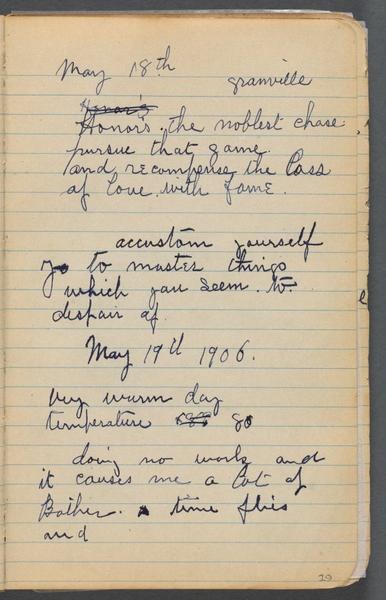 May 18th
granville
Honor's
Honor's the noblest chase
pursue that game
and recompense the Loss
of Love with Fame.
accustom yourself
to master things
which you seem to
despair of
May 19th 1906.
Very warm day
temperature 80
doing no work and
it causes me a Lot of
Bother. time flies
and